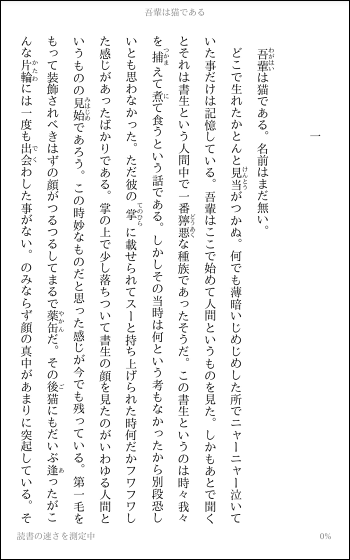 吾輩は猫である
一
吾輩は猫である。名前はまだ無い。
どこで生れたかとんと見当がつかぬ。何でも薄暗いじめじめした所でニャーニャー泣いて
いた事だけは記憶している。吾輩はここで始めて人間というものを見た。しかもあとで聞く
とそれは書生という人間中で一番獰悪な種族であったそうだ。この書生というのは時々我々
を捕えて煮て食うという話である。しかしその当時は何という考もなかったから別段恐し
いとも思わなかった。ただ彼の掌に載せられてスーと持ち上げられた時何だかフワフワし
た感じがあったばかりである。掌の上で少し落ちついて書生の顔を見たのがいわゆる人間と
いうものの見始であろう。この時妙なものだと思った感じが今でも残っている。第一毛を
もって装飾されべきはずの顔がつるつるしてまるで薬缶だ。その後猫にもだいぶ逢ったがこ
んな片輪には一度も出会わした事がない。のみならず顔の真中があまりに突起している。そ
読書の速さを測定中
0%